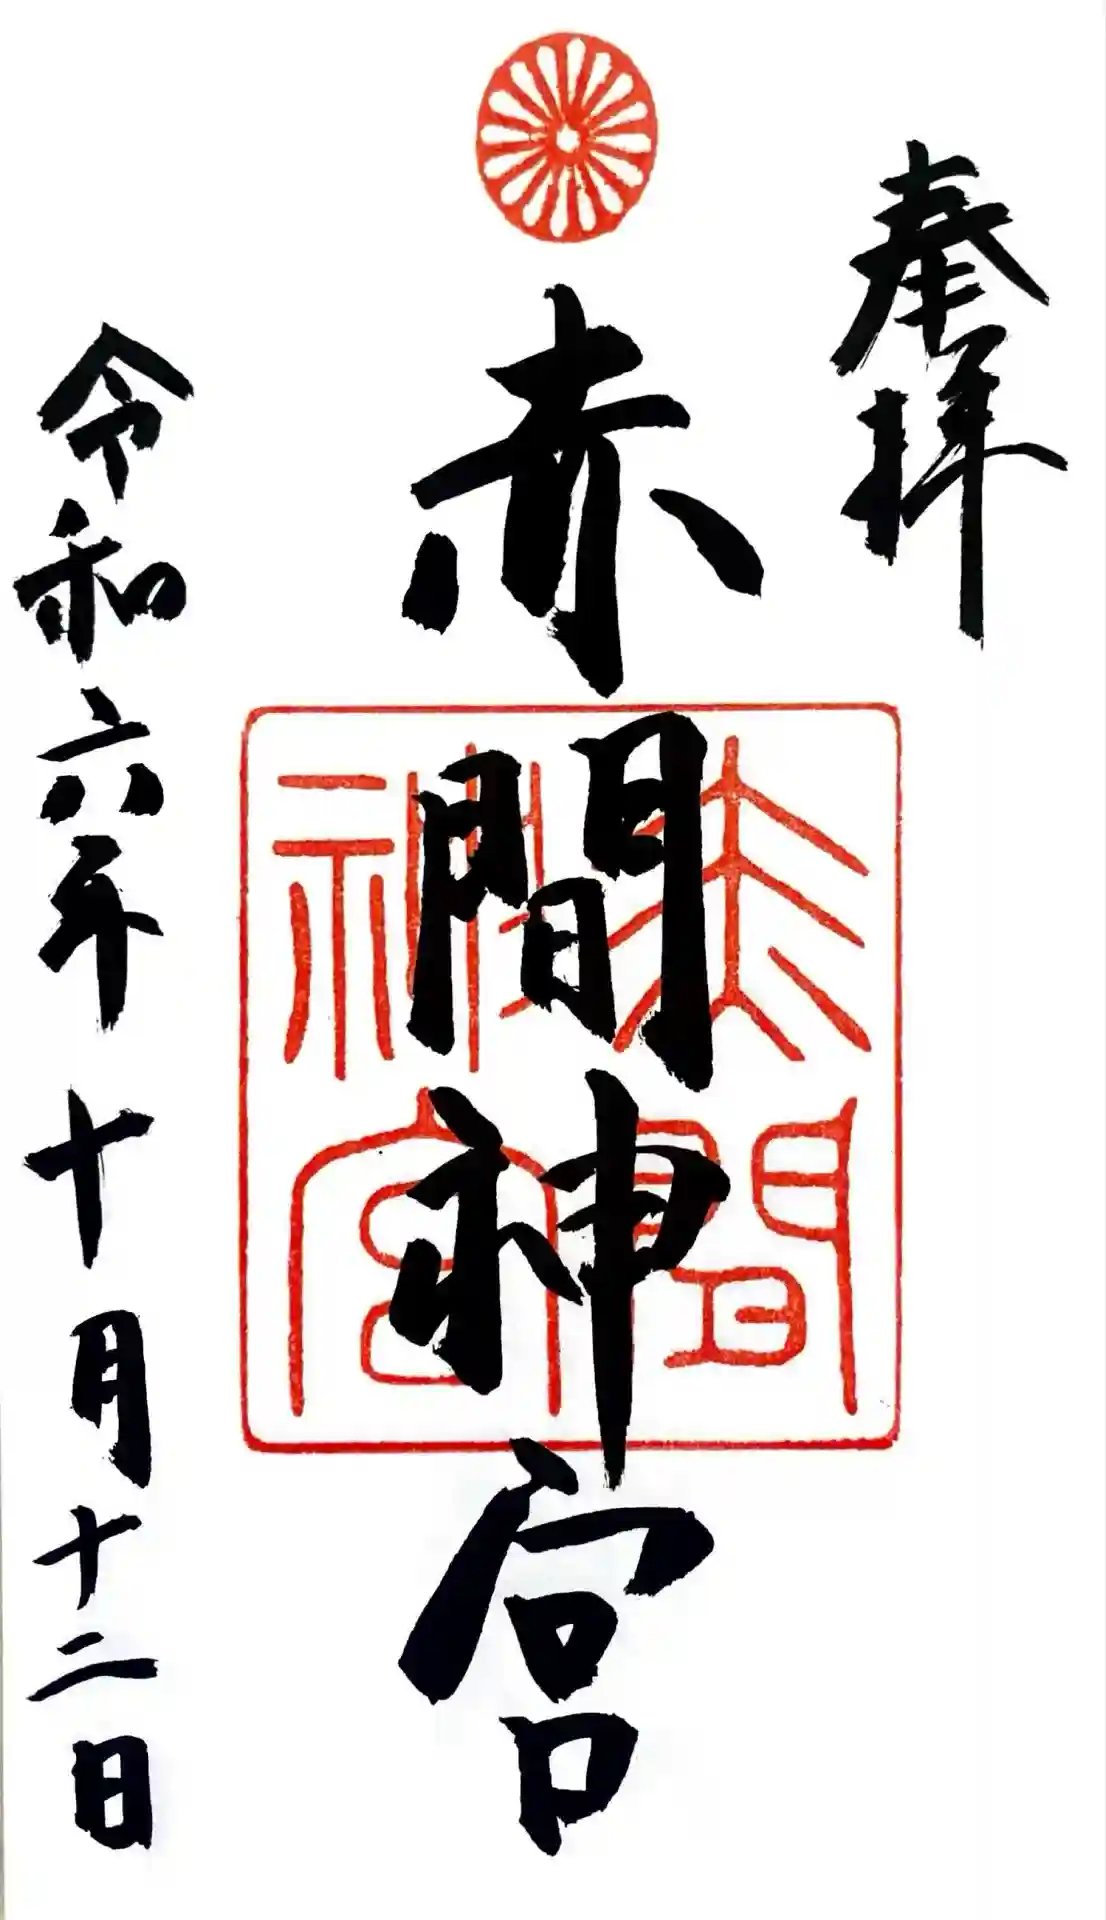 奉拝
赤間神宮
赤間
神宮
令和六年十月十二日